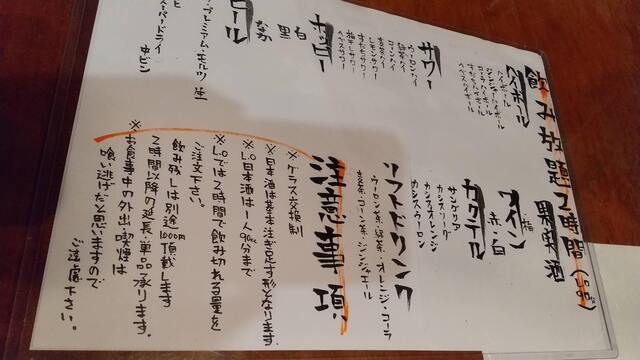 飲み放題2時間
ハイボール
ハイボール
ジンジャーハイボール
コークハイボール
サワー
ウーロンハイ
緑茶ハイ
コーンハイ
レモンサワー
すだちサワー
梅干しサワー
ホッピー
白
黒
なか
ビール
ザ・プレミアム・モルツ 生
スーパードライ
中ビン
果実酒
梅
ワイン
赤・白
カクテル
サングリア
カシスソーダ
カシスオレンジ
カシスウーロン
ソフトドリンク
ウーロン茶・緑茶・オレンジ・コーラ
コーン茶・ジンジャエール
注意事項
※グラス交換制
※日本酒は基本注ぎ足す形となります。
※L.O日本酒は一人90ccまで
※L.Oでは2時間で飲み切れる量を
ご注文下さい。
飲み残しは別途1000円頂戴します
2時間以降の延長・単品承ります。
※お食事中の外出・喫煙は
喰い逃げだと思いますので
ご遠慮下さい。